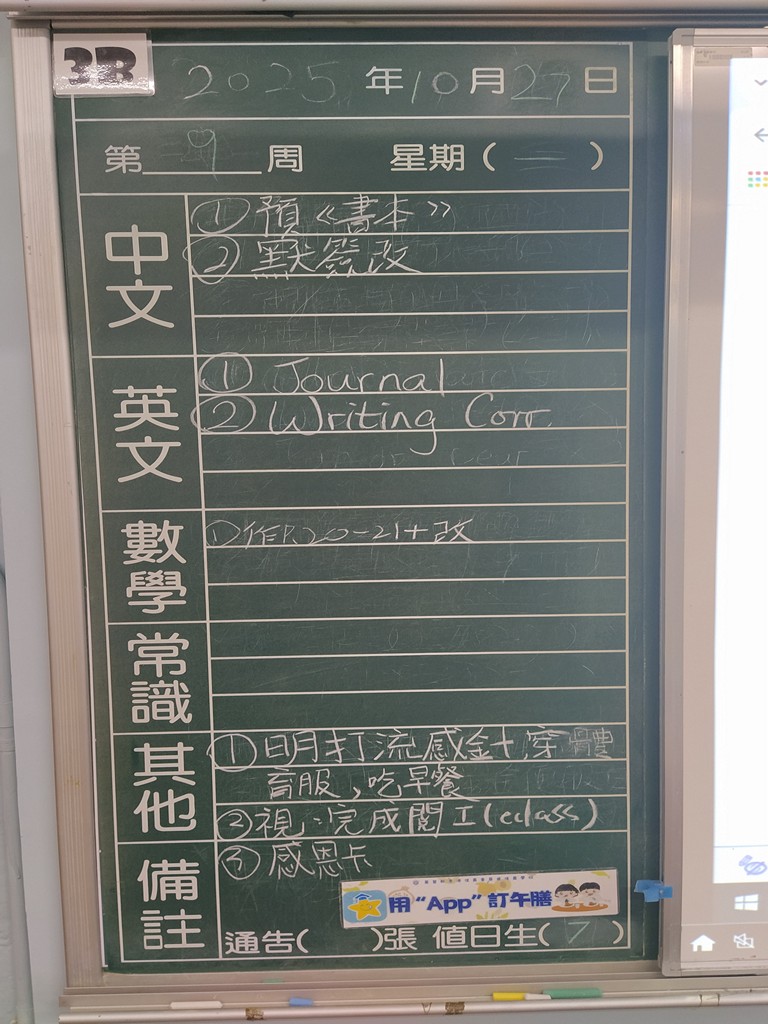 3B
2025年10月27日
第9周 星期(一)
中文
① 預《書本》
② 默簽改
英文
① Journal
② Writing Corr.
數學
① 作P.20-21+改
常識
其他
① 明打流感針,穿體
育服,吃早餐
② 視:完成閣工(eclass)
備註
③ 感恩卡
用“App”訂午膳
通告( )張 值日生(7)